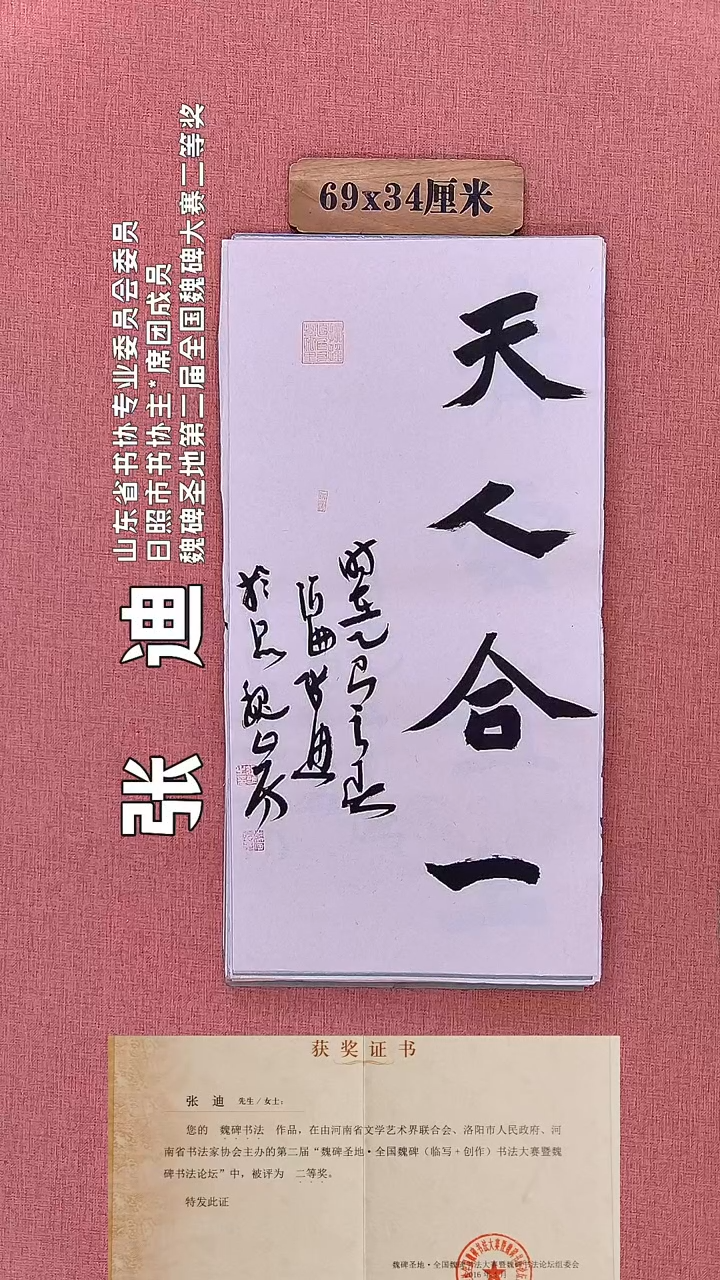 69x34厘米
天人合一
张 迪
山东省书协专业委员会委员
日照市书协主*席团成员
魏碑圣地第二届全国魏碑大赛二等奖
获奖证书
张 迪 先生/女士：
您的 魏碑书法 作品，在由河南省文学艺术界联合会、洛阳市人民政府、河
南省书法家协会主办的第二届“魏碑圣地·全国魏碑（临写+创作）书法大赛暨魏
碑书法论坛”中，被评为 二等奖。
特发此证
魏碑圣地·全国魏碑书法大赛暨魏碑书法论坛组委会